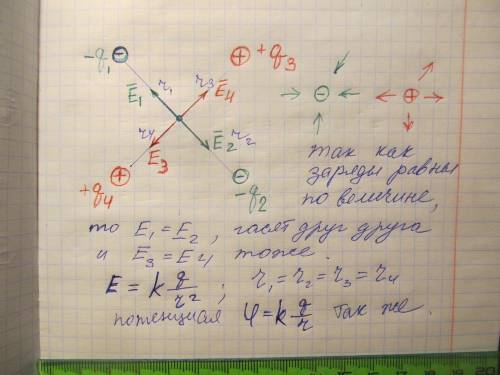 -q₁ ⊖ ⊕ +q₃
Ē₁ r₁ r₃ Ē₄
r₄ Ē₃ Ē₂ r₂
+q₄ ⊕ ⊖ -q₂
→ ⊖ ← ← ⊕ →
так как
заряды равны
по величине,
то E₁ = E₂, гасят друг друга
и E₃ = E₄, тоже.
E = k q/r² ; r₁ = r₂ = r₃ = r₄
потенциал φ = k q/r так же.